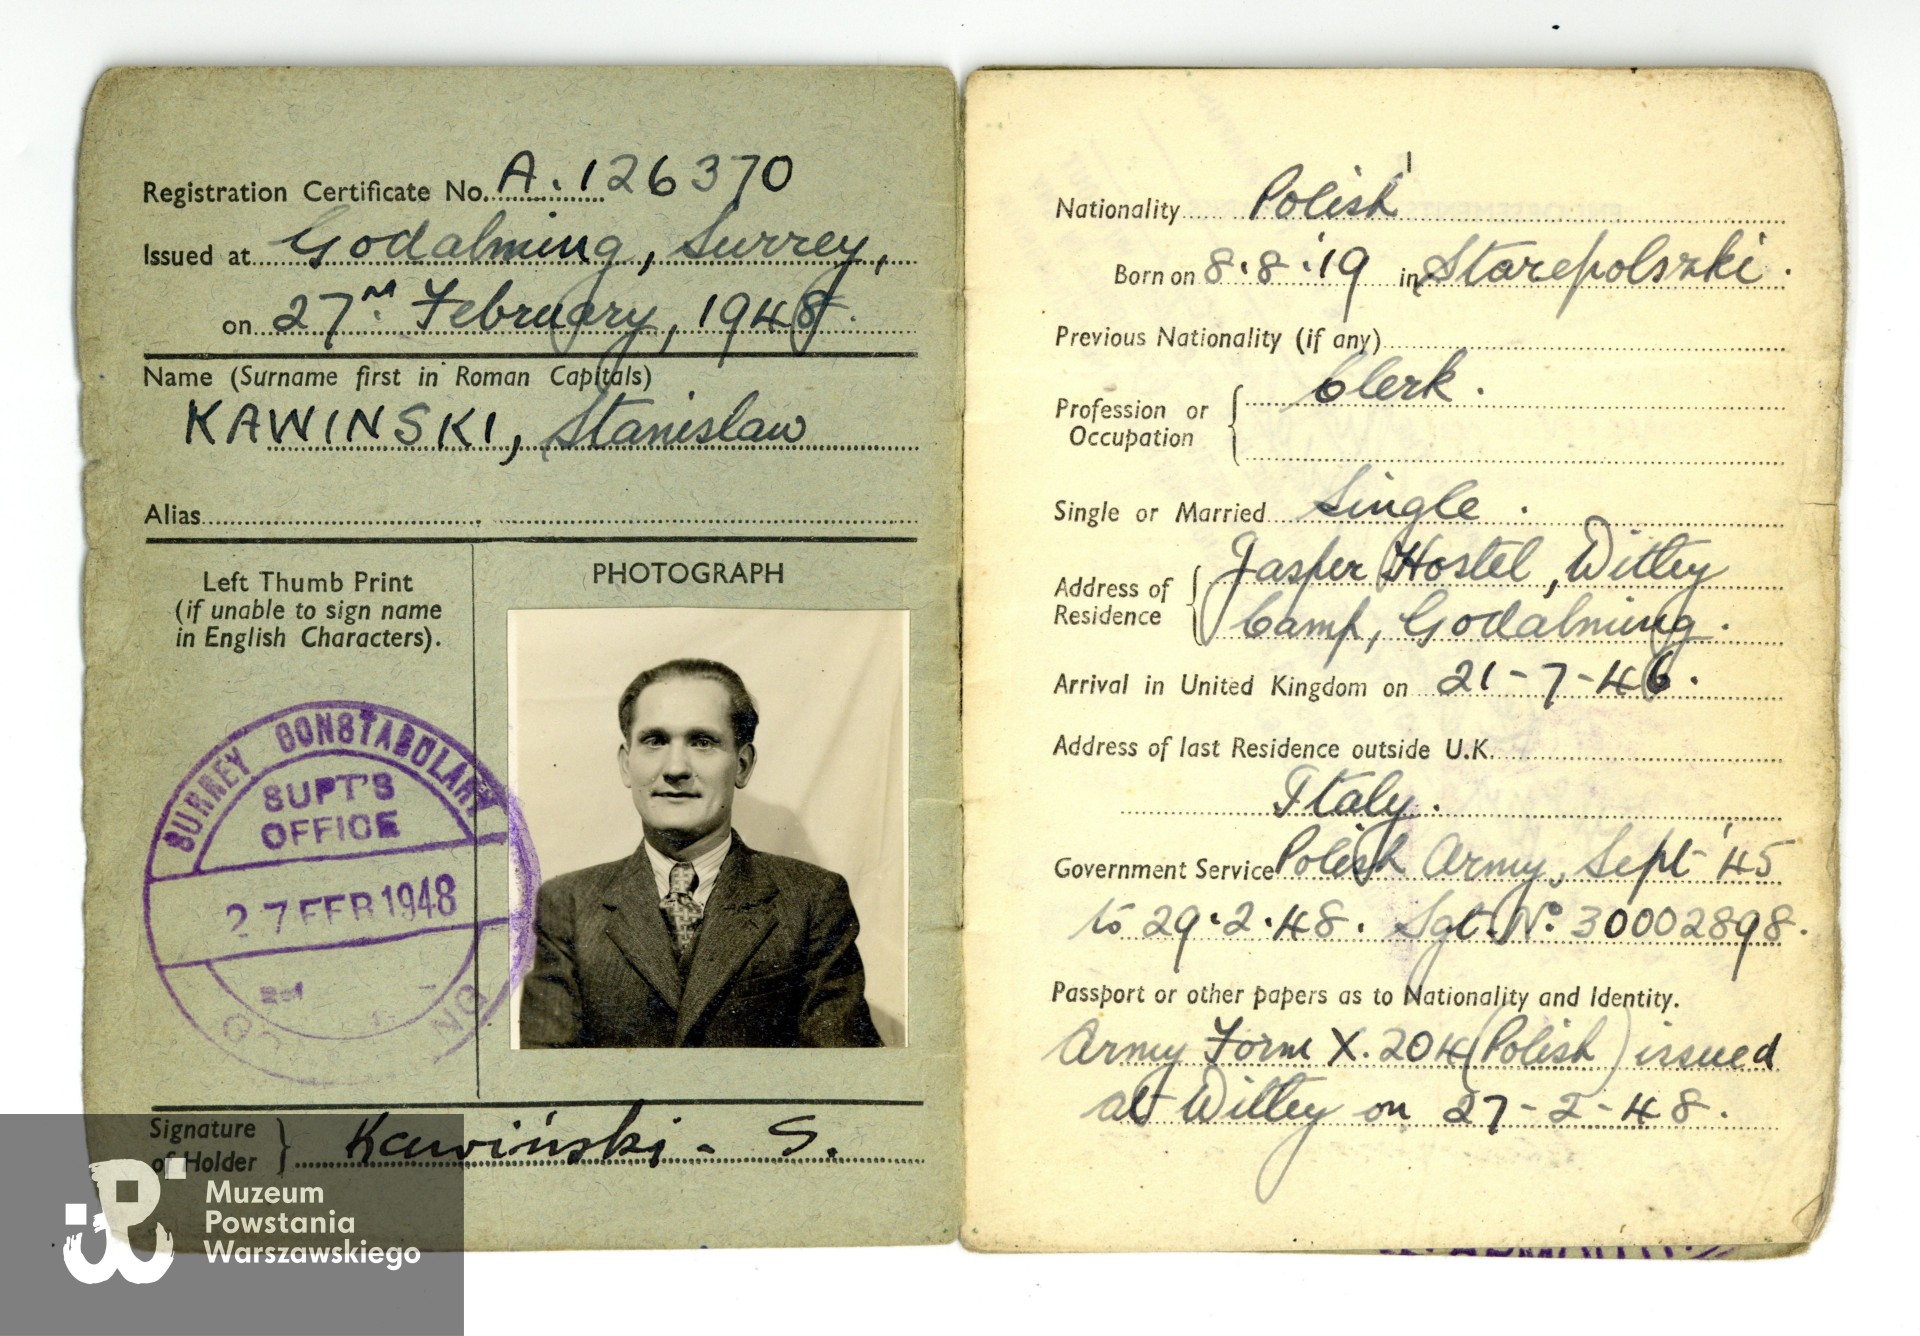 Registration Certificate No. A. 126370
Issued at Godalming, Surrey,
on 27th February, 1948.
Name (Surname first in Roman Capitals)
KAWINSKI, Stanislaw
Alias
Left Thumb Print
(if unable to sign name
in English Characters).
PHOTOGRAPH
SURREY CONSTABULARY
SUPT'S
OFFICE
27 FEB 1948
Signature
of Holder } Kawiński - S.
Muzeum
Powstania
Warszawskiego
Nationality Polish
Born on 8.8.'19 in Starepolszki.
Previous Nationality (if any)
Clerk.
Profession or
Occupation
Single or Married Single.
Jasper Hostel, Witley
Address of
Residence
Camp, Godalming.
Arrival in United Kingdom on 21-7-46.
Address of last Residence outside U.K.
Italy.
Government Service Polish Army, Sept '45
to 29.2.48. Sgt. No. 30002898.
Passport or other papers as to Nationality and Identity.
Army Form X.204 (Polish) issued
at Witley on 27-2-48.